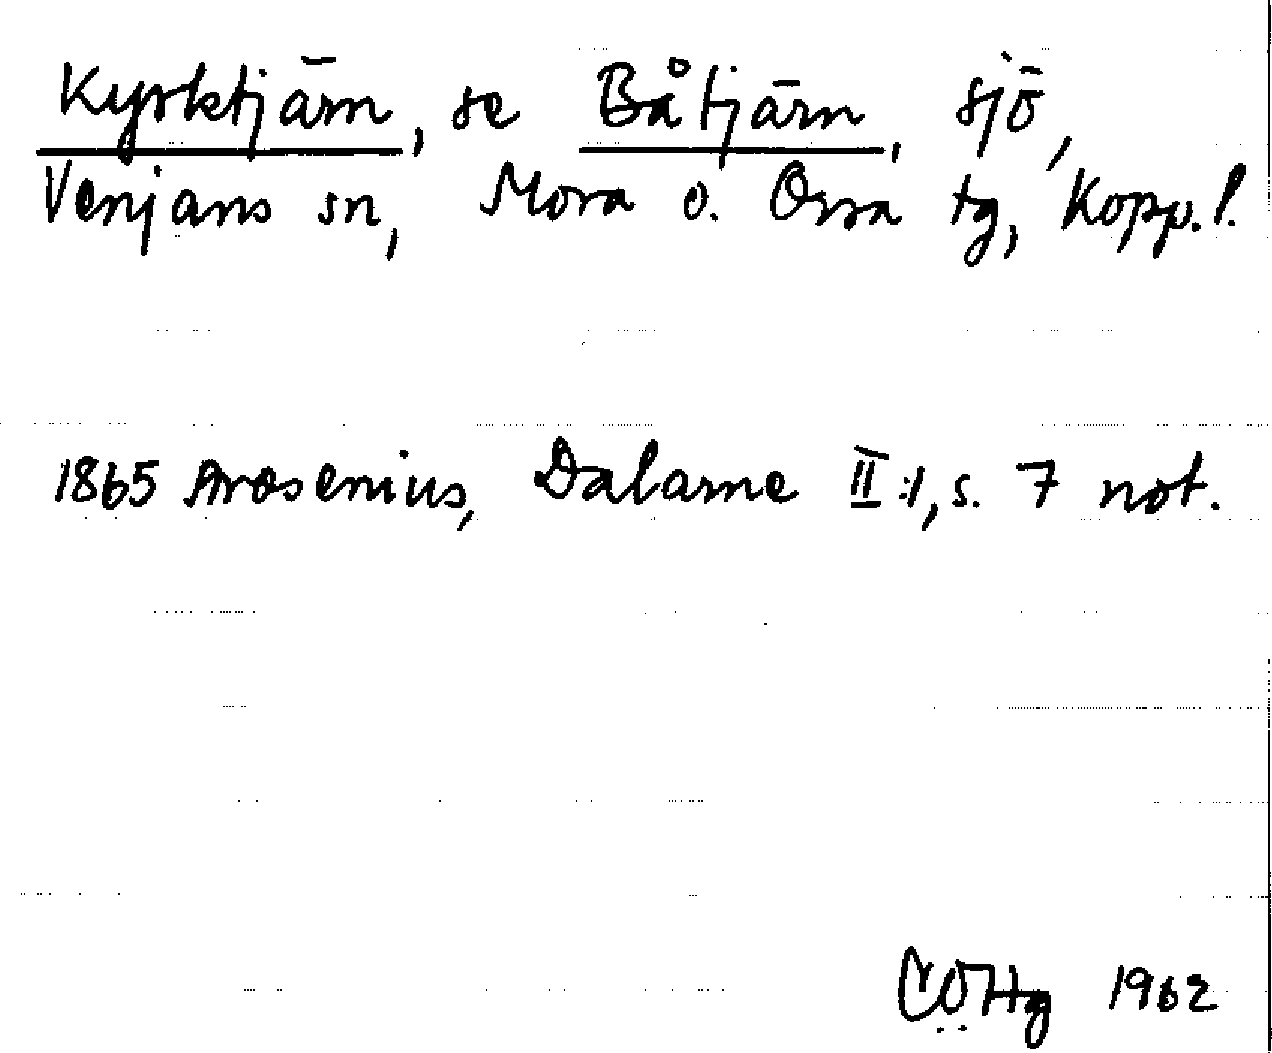 Kyrktjärn, se Båtjärn, sjö,
Venjans sn, Mora o. Orsa tg, Kopp. l.
1865 Arosenius, Dalarne II:1, s. 7 not.
1962